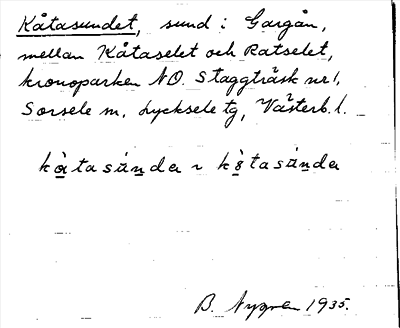 Kåtasundet, sund i Gargån,
mellan Kåtaselet och Ratselet,
kronoparken NO. Staggträsk nr 1,
Sorsele sn, Lycksele tg, Västerb. l.
kå̀tasúnda ~ kò̀tasúnda
B. Nygren 1935.